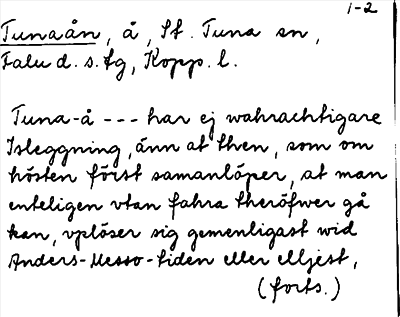 1-2
Tunaån, å, St. Tuna sn,
Falu d. s. fg, Kopp. l.
Tuna-å --- har ej wahrachtigare
Isleggning, änn at then, som om
hösten först samanlöper, at man
enteligen vtan fahra theröfwer gå
kan, vplöser sig gemenligast wid
Anders-Messo-tiden eller elljest,
(forts.)